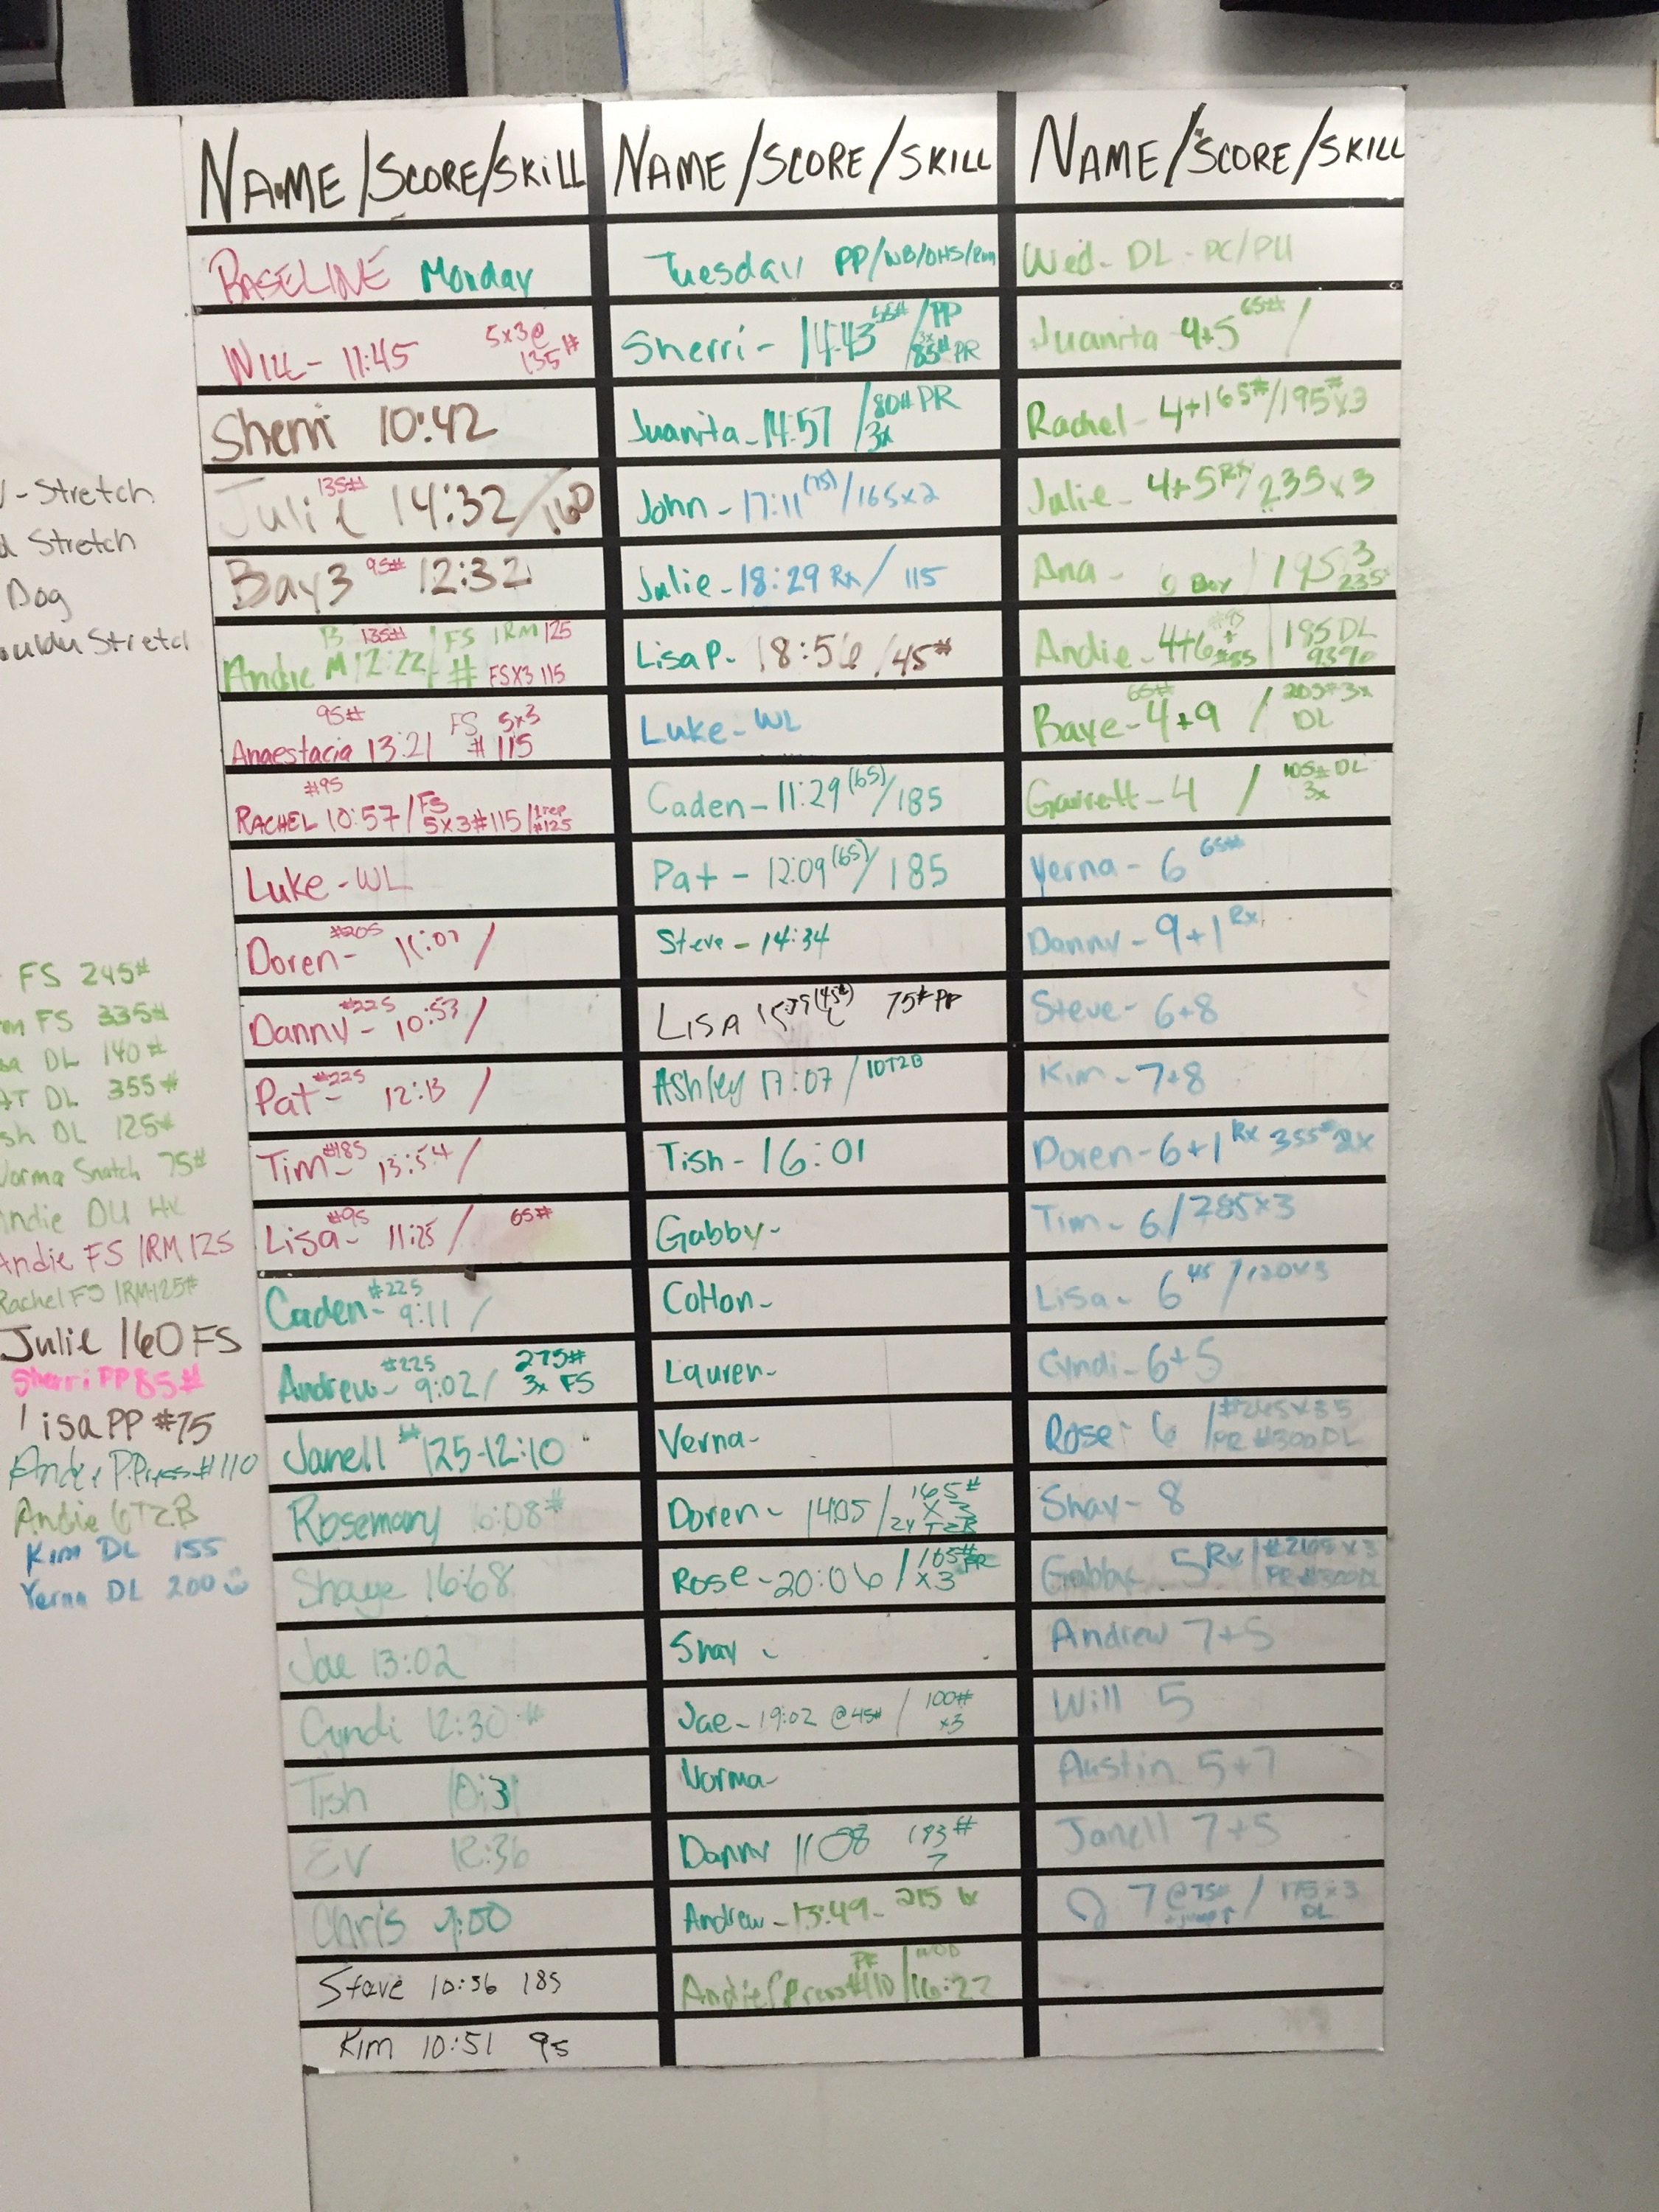 NAME/SCORE/SKILL
BASELINE Monday
WILL- 11:45 5x3@ 135#
Sherri 10:42
Julie 135# 14:32/160
Bay3 95# 12:32
Andie 135# 12:22/ FS 1RM 125
# FSX3 115
Anaestacia 95# 13:21 FS 5x3
# 115
RACHEL #95 10:57/FS 5x3#115/1rep #125
Luke-WL
Doren- #205 11:07 /
Danny- #225 10:53/
Pat- #225 12:13 /
Tim- #185 13:54/
Lisa- #95 11:25/ 65#
Caden- #225 9:11 /
Andrew- #225 9:02/ 275# 3x FS
Janell #125-12:10
Rosemary 6:08#
Shaye 16:68
Jae 13:02
Cyndi 12:30 #
Tish 10:31
EV 12:36
Chris 9:00
Steve 10:36 185
Kim 10:51 95
NAME/SCORE/SKILL
Tuesday PP/WB/OHS/Run
Sherri- 14:43 55# /PP 3x 85# PR
Juanita-14:57 /80# PR 3x
John- 17:11 (75)/165x2
Julie-18:29 Rx/ 115
Lisa P- 18:56 /45#
Luke-WL
Caden-11:29 (65)/185
Pat - 12:09 (65)/185
Steve - 14:34
LISA (45#) 75# PP
Ashley 17:07/10T2B
Tish-16:01
Gabby-
Cotton-
Lauren-
Verna-
Doren- 14:05/165# x 3
24 T2B
Rose-20:06/165# PR x3
Shay -
Jae-19:02 @45# / 100# x3
Norma-
Danny 11:08 193#
Andrew-13:49- 215 1x
Andie P Press #110 PR/WOD 16:22
NAME/SCORE/SKILL
Wed- DL- PC/PU
Juanita 4+5 65# /
Rachel- 4+1 65#/195#x3
Julie- 4+5 Rx/235x3
Ana- 195 3 235#
Andie-4+6 #95 + #55 185 DL 93%
Baye-4+9 65# / 205# 3x DL
Garrett-4 / 105# DL 3x
Verna- 6 65#
Danny- 9+1 Rx
Steve- 6+8
Kim-7+8
Doren-6+1 Rx 355# 2x
Tim- 6/285x3
Lisa- 6 45 /120x3
Cyndi-6+5
Rose- 6 /#245x3
PR #300DL
Shay- 8
Gabby- 5 Rx/#265x3
PR #300DL
Andrew 7+5
Will 5
Austin 5+7
Janell 7+5
7 @75# / 175x3 DL
-Stretch
Stretch
Dog
Stretch
FS 245#
FS 335#
DL 140#
DL 355#
DL 125#
Norma Snatch 75#
Andie DU
Andie FS 1RM 125
Rachel FS 1RM 125#
Julie 160 FS
Sherri PP 85#
Lisa PP #75
Andie P.Press #110
Andie 6T2B
Kim DL 155
Verna DL 200